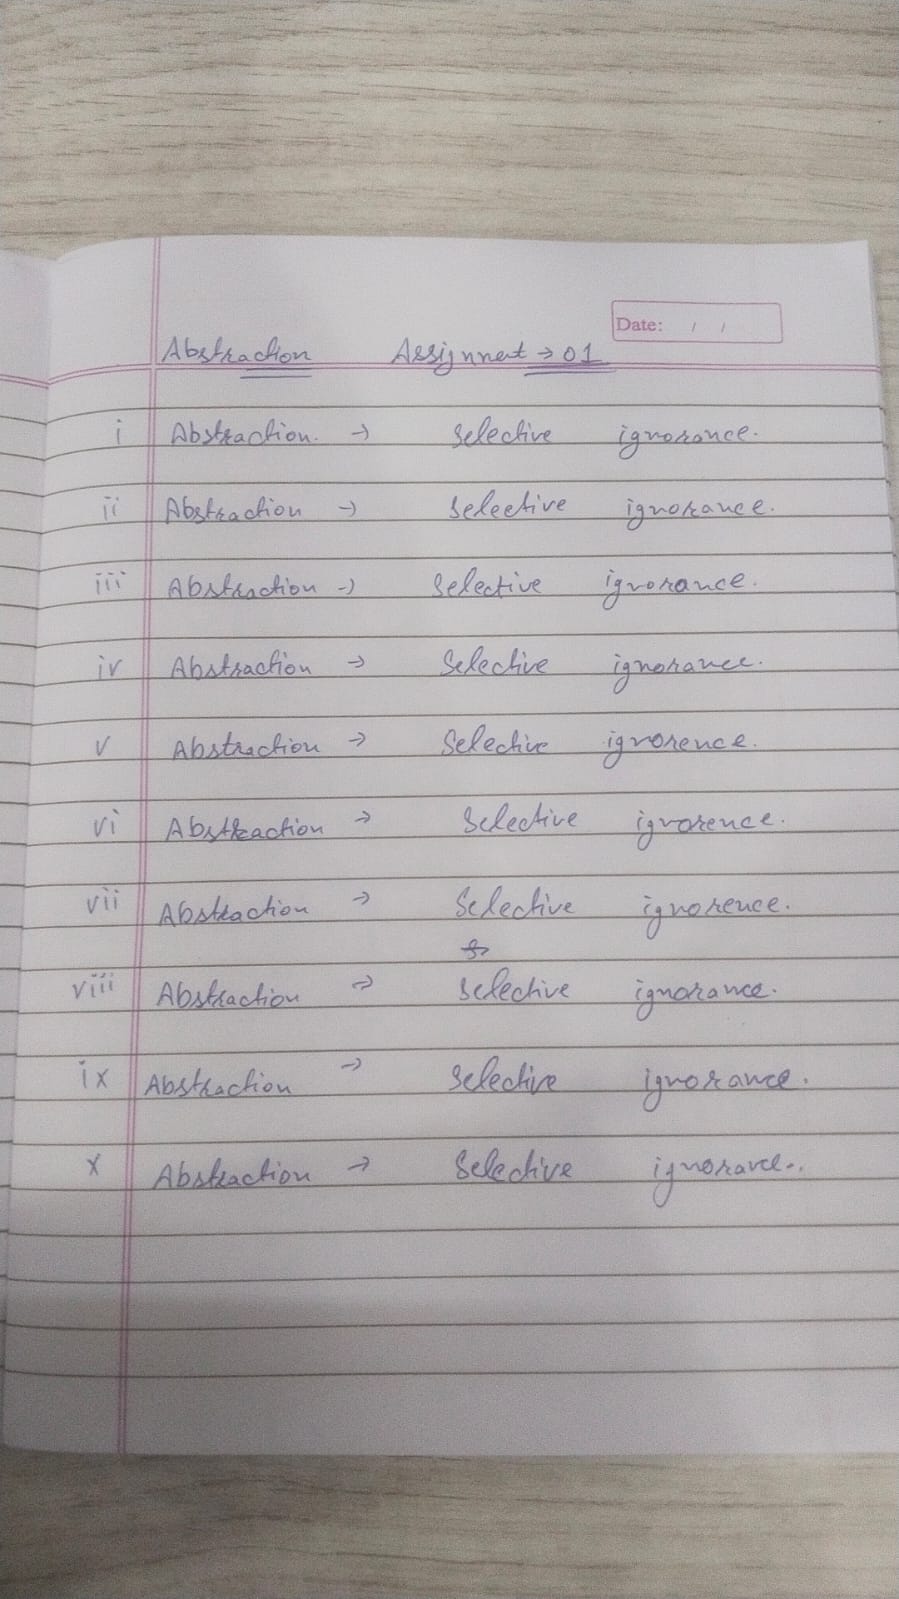 Date: / /
Abstraction Assignment → 01
i Abstraction. → Selective ignorance.
ii Abstraction → Selective ignorance.
iii Abstraction → Selective ignorance.
iv Abstraction → Selective ignorance.
v Abstraction → Selective ignorence.
vi Abstraction → Selective ignorence.
vii Abstraction → Selective ignorence.
viii Abstraction → Selective ignorance.
ix Abstraction → Selective ignorance.
x Abstraction → Selective ignorance..